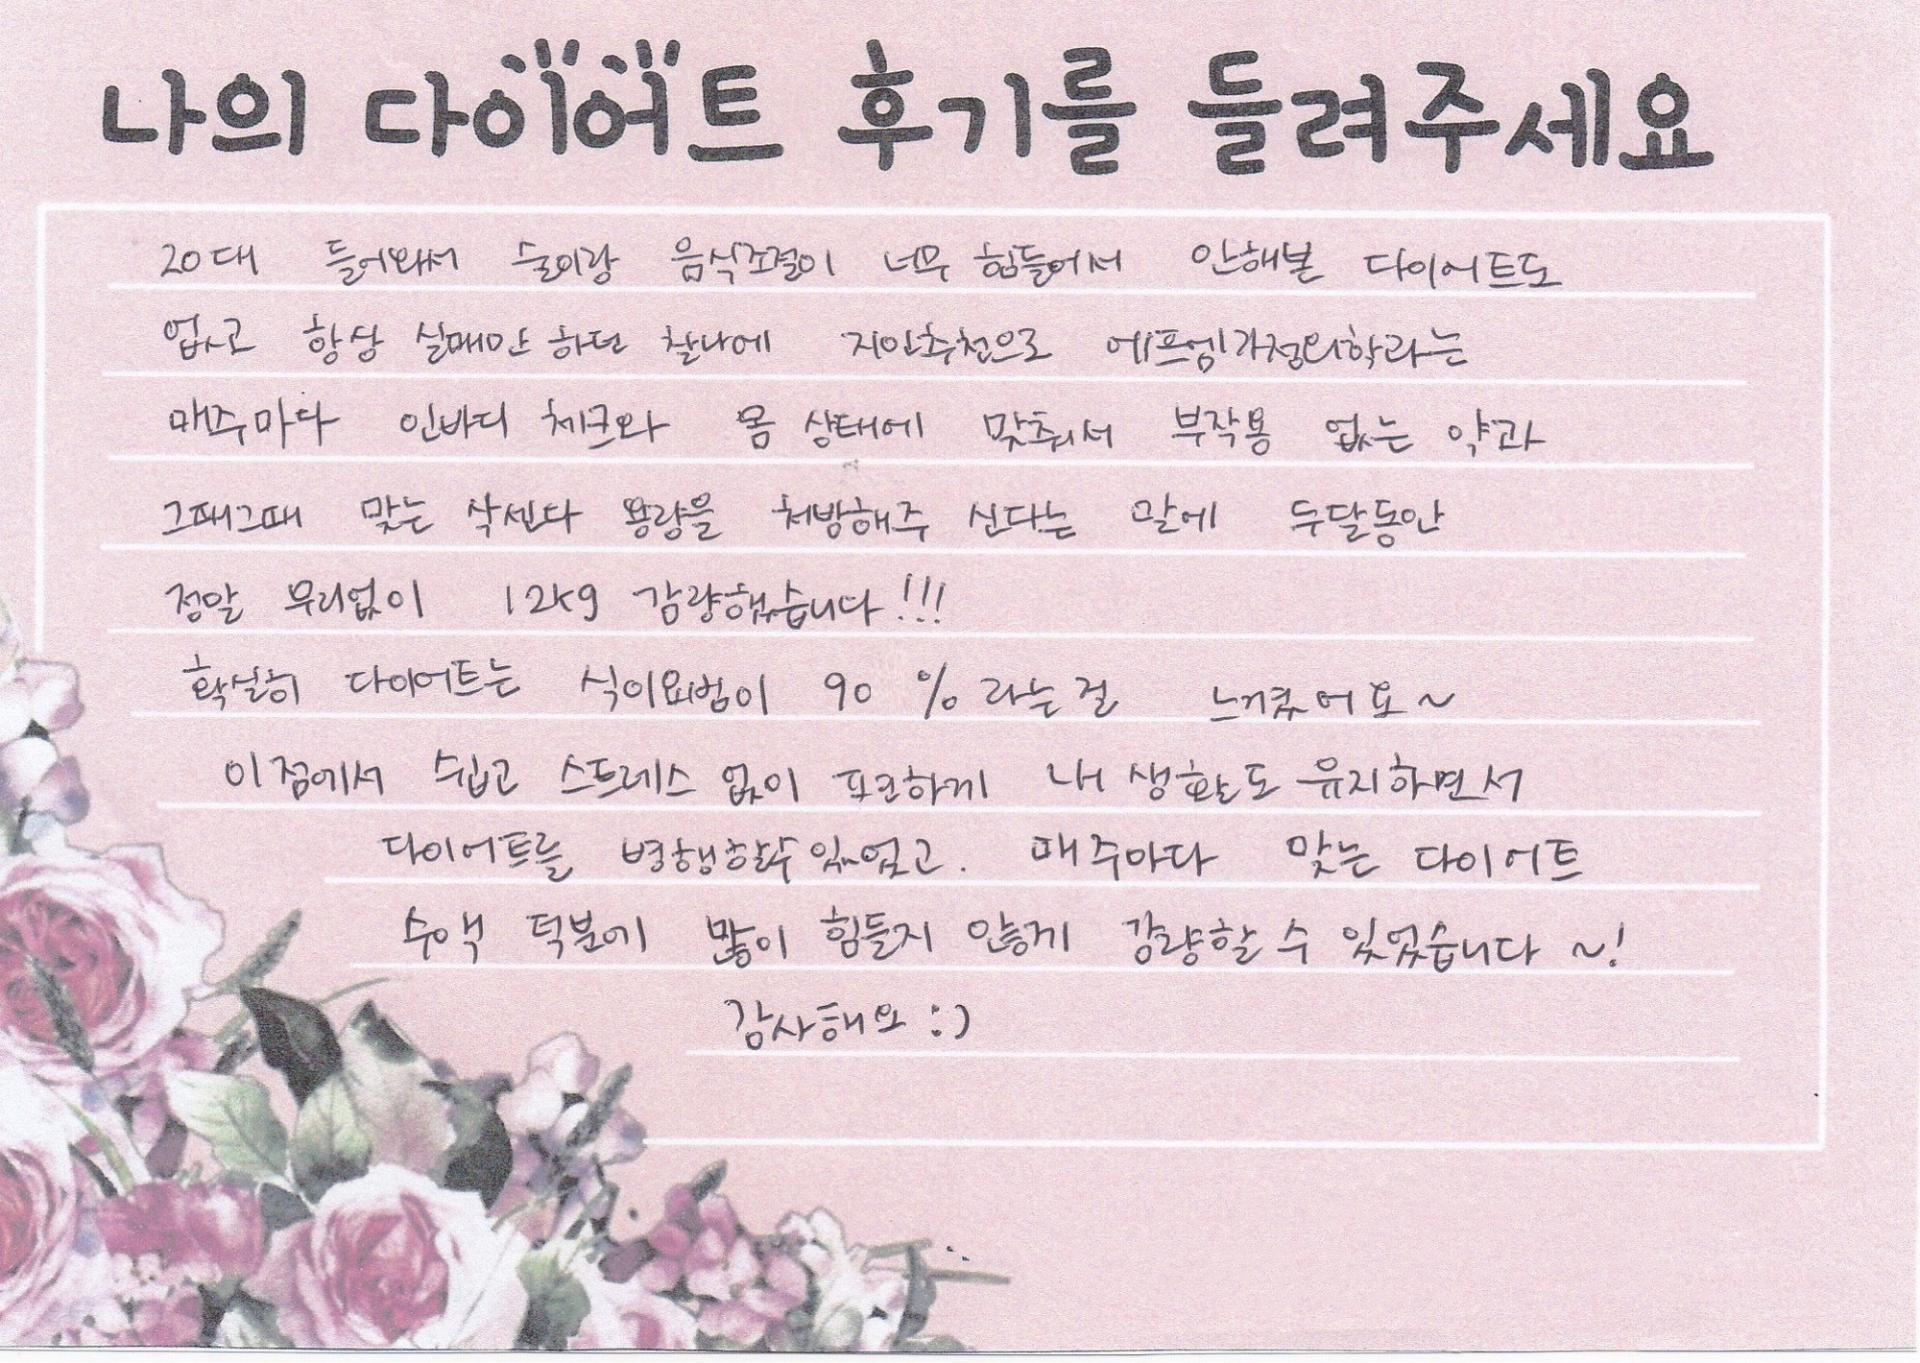 나의 다이어트 후기를 들려주세요
20대 들어와서 술이랑 음식조절이 너무 힘들어서 안해본 다이어트도
없고 항상 실패만 하던 찰나에 지인추천으로 에프엠가정의학라는
매주마다 인바디 체크와 몸 상태에 맞춰서 부작용 없는 약과
그때그때 맞는 삭센다 용량을 처방해주신다는 말에 두달동안
정말 무리없이 12kg 감량했습니다!!!
확실히 다이어트는 식이요법이 90%라는걸 느꼈어요~
이점에서 쉽고 스트레스 없이 편하게 내 생활도 유지하면서
다이어트를 병행할수있었고. 매주마다 맞는 다이어트
수액 덕분에 많이 힘들지 않게 감량할 수 있었습니다~!
감사해요 :)